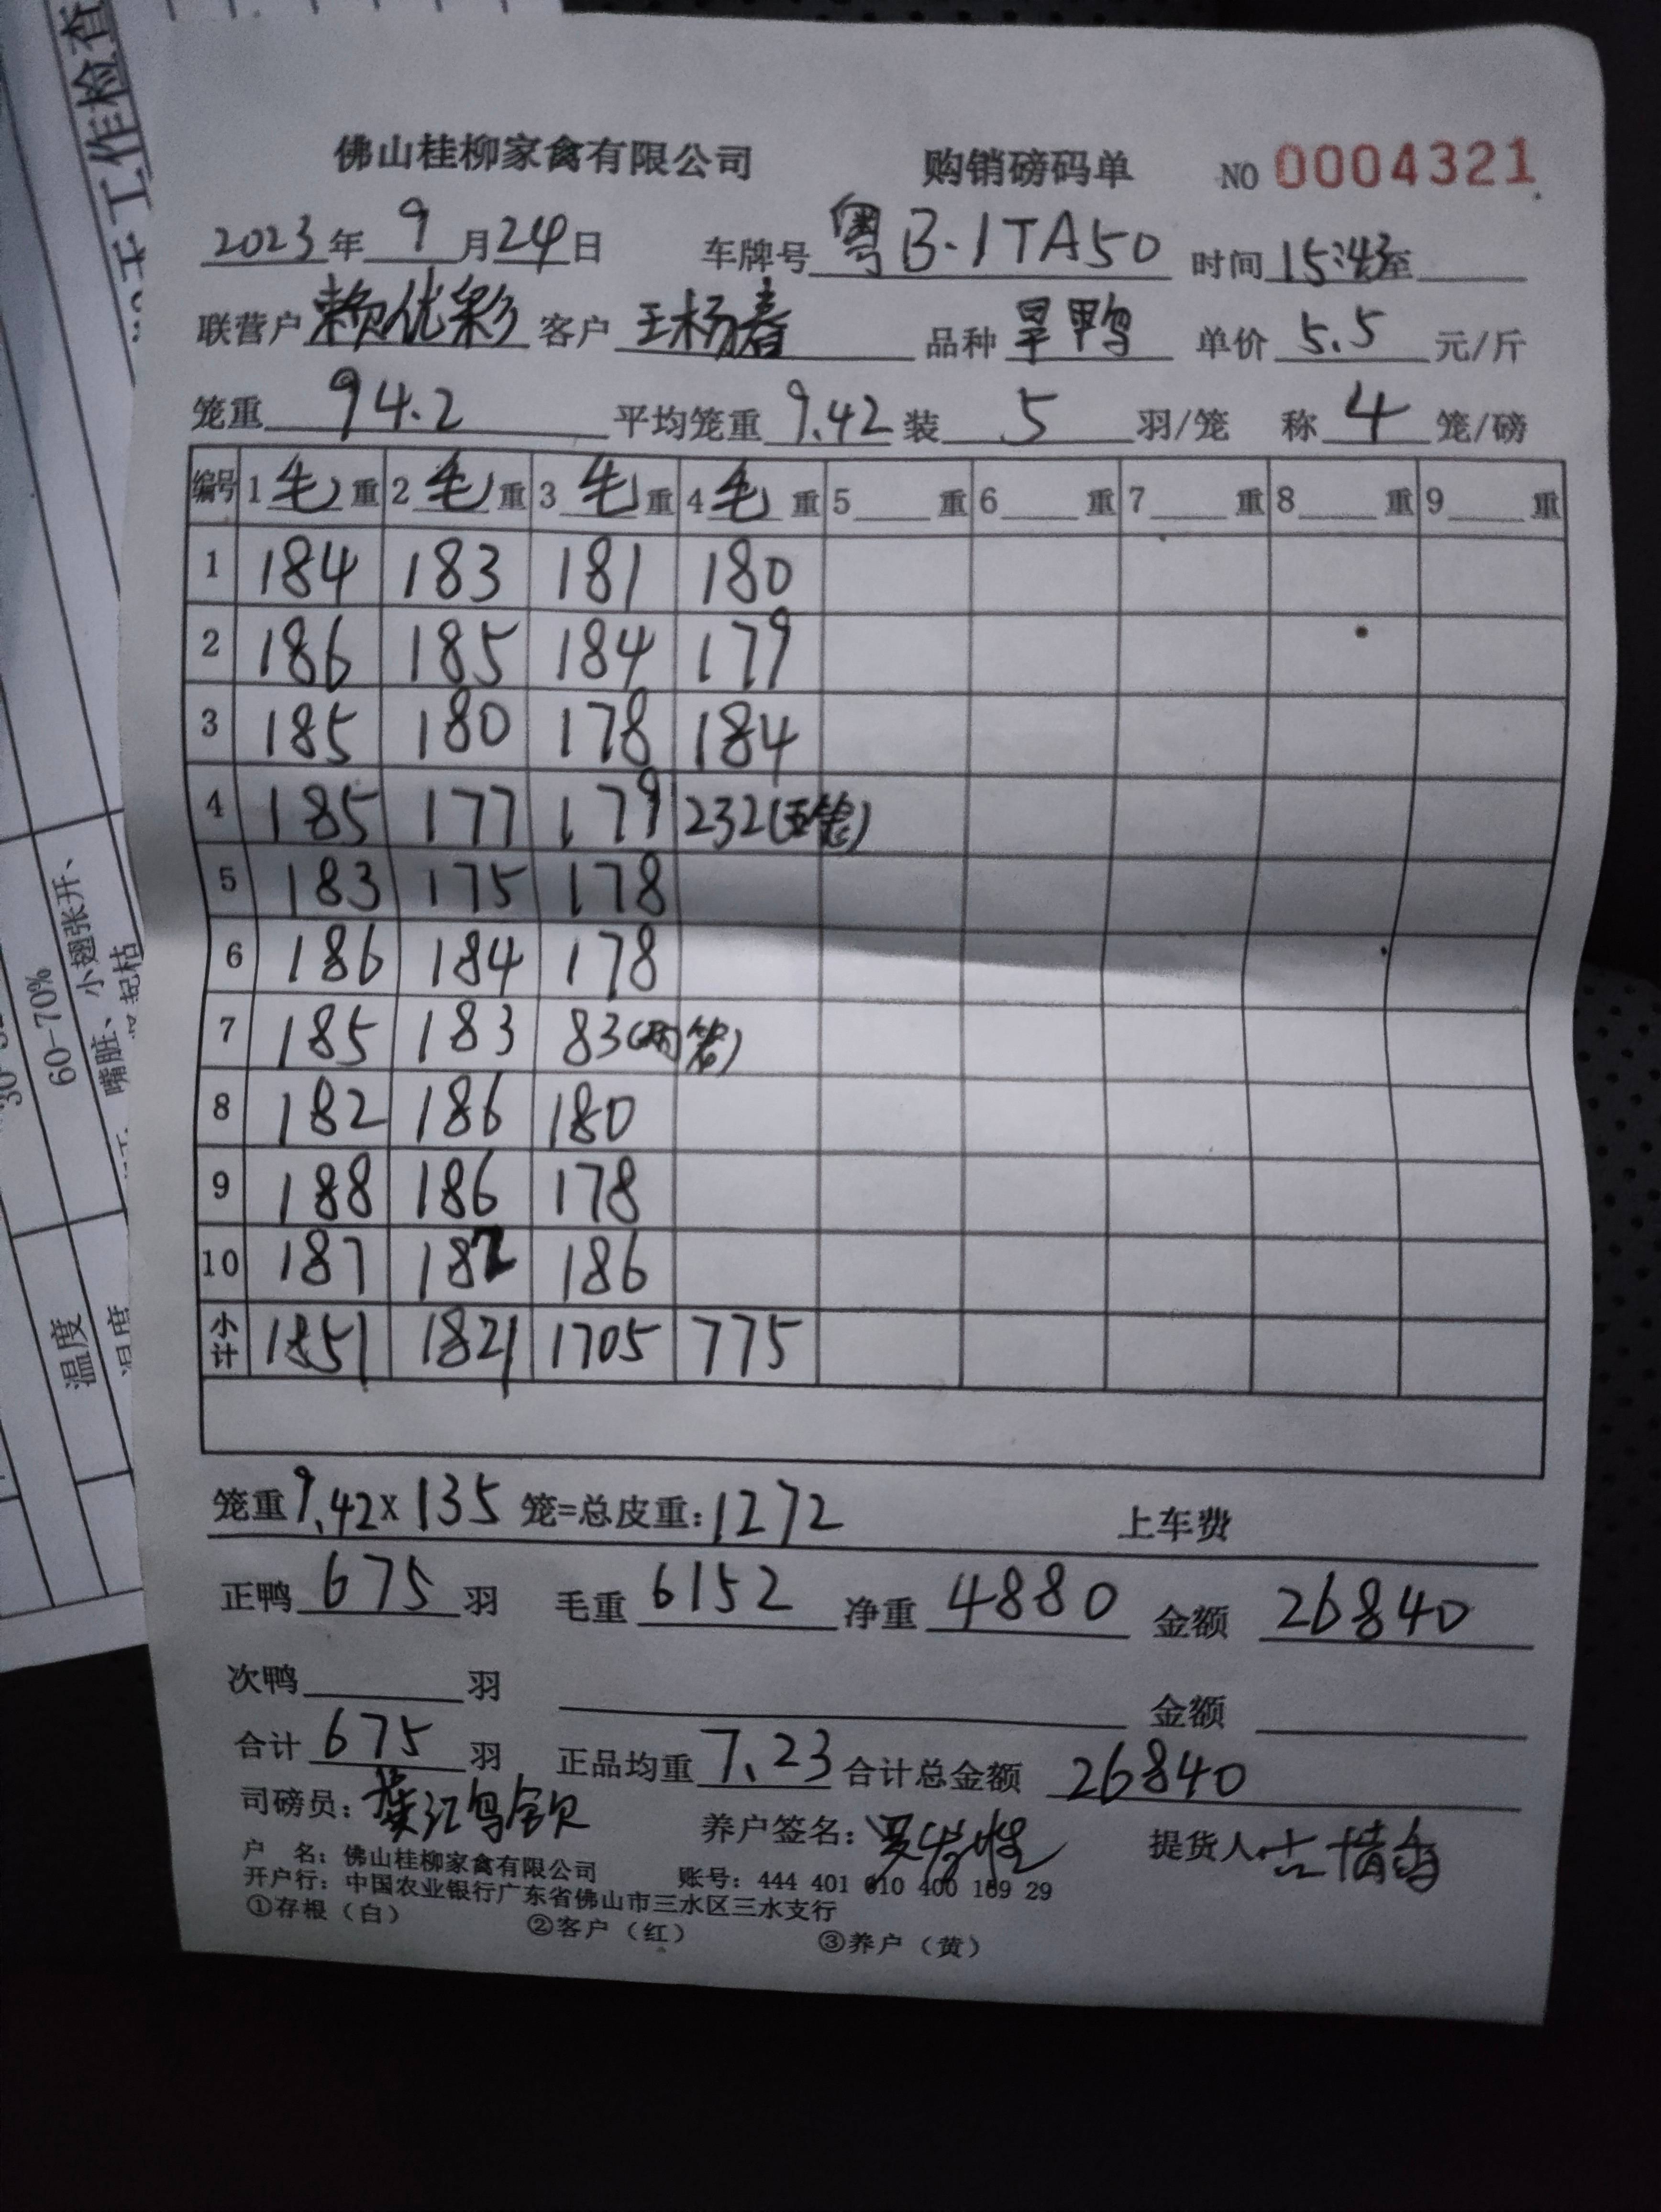 佛山桂柳家禽有限公司 购销磅码单 NO 0004321
2023年 9月24日 车牌号 粤B·1TA50 时间 15:43至
联营户 赖优彩 客户 王杨春 品种 旱鸭 单价 5.5 元/斤
笼重 94.2 平均笼重 9.42 装 5 羽/笼 称 4 笼/磅
编号 1毛重 2毛重 3毛重 4毛重 5重 6重 7重 8重 9重
1 184 183 181 180
2 186 185 184 179
3 185 180 178 184
4 185 177 179 232(五笼)
5 183 175 178
6 186 184 178
7 185 183 83(两笼)
8 182 186 180
9 188 186 178
10 187 182 186
小计 1851 1821 1705 775
笼重 9.42x 135 笼=总皮重:1272 上车费
正鸭 675 羽 毛重 6152 净重 4880 金额 26840
次鸭 羽 金额
合计 675 羽 正品均重 7.23 合计总金额 26840
司磅员: 养户签名: 提货人
户 名: 佛山桂柳家禽有限公司 账号: 444 401 010 400 169 29
开户行: 中国农业银行广东省佛山市三水区三水支行
①存根(白) ②客户(红) ③养户(黄)
工作检查
60-70%
嘴脏、小翅张开、
温度
温度